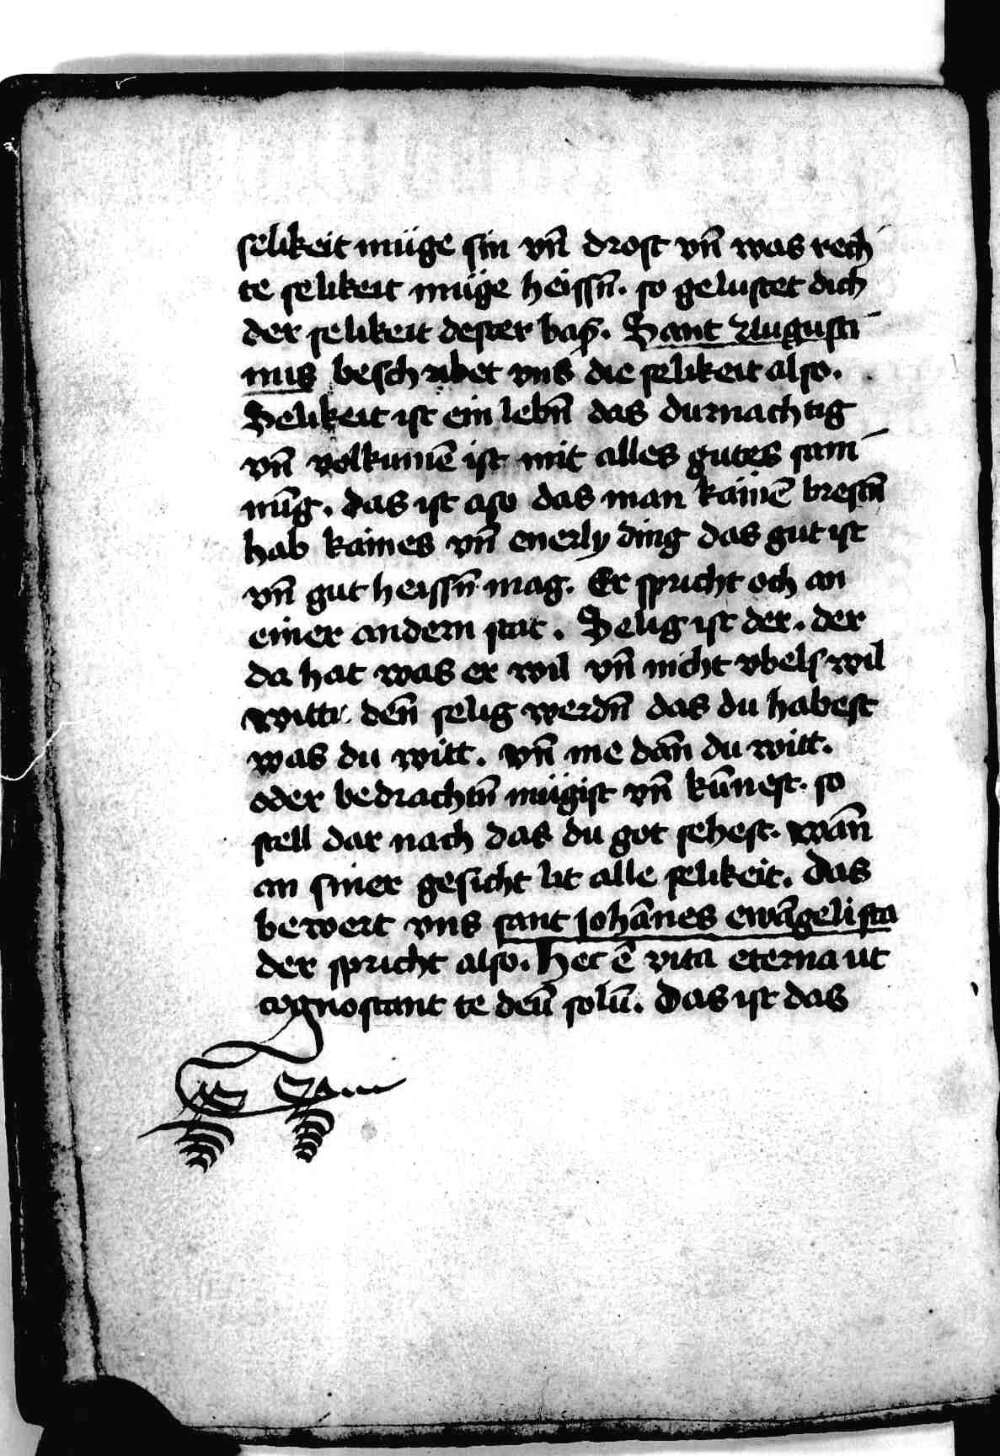 selikeit müge sin vn̄ drost vn̄ was rech
te selikeit müge heissn̄. so gelustet dich
der selikeit dester baß. Sant Augusti
nus beschribet vns die selikeit also.
Selikeit ist ein lebn̄ das durnachtig
vn̄ volkumē ist mit alles gutes sam
nūg. das ist aso das man kainē brestn̄
hab kaines vn̄ enerly ding das gut ist
vn̄ gut heissn̄ mag. Er spricht och an
einer andern stat. Selig ist der. der
da hat was er wil vn̄ nicht vbels wil
wiltu den̄ selig werdn̄ das du habest
was du wilt. vn̄ me dan̄ du wilt.
oder bedrachtn̄ mügist vn̄ kūnest. so
stell dar nach das du got sehest. wan̄
an siner gesicht lit alle selikeit. Das
bewert vns sant Johānes ewāgelista
der spricht also. Hec ē vita eterna ut
cognoscant te deū solū. Das ist das